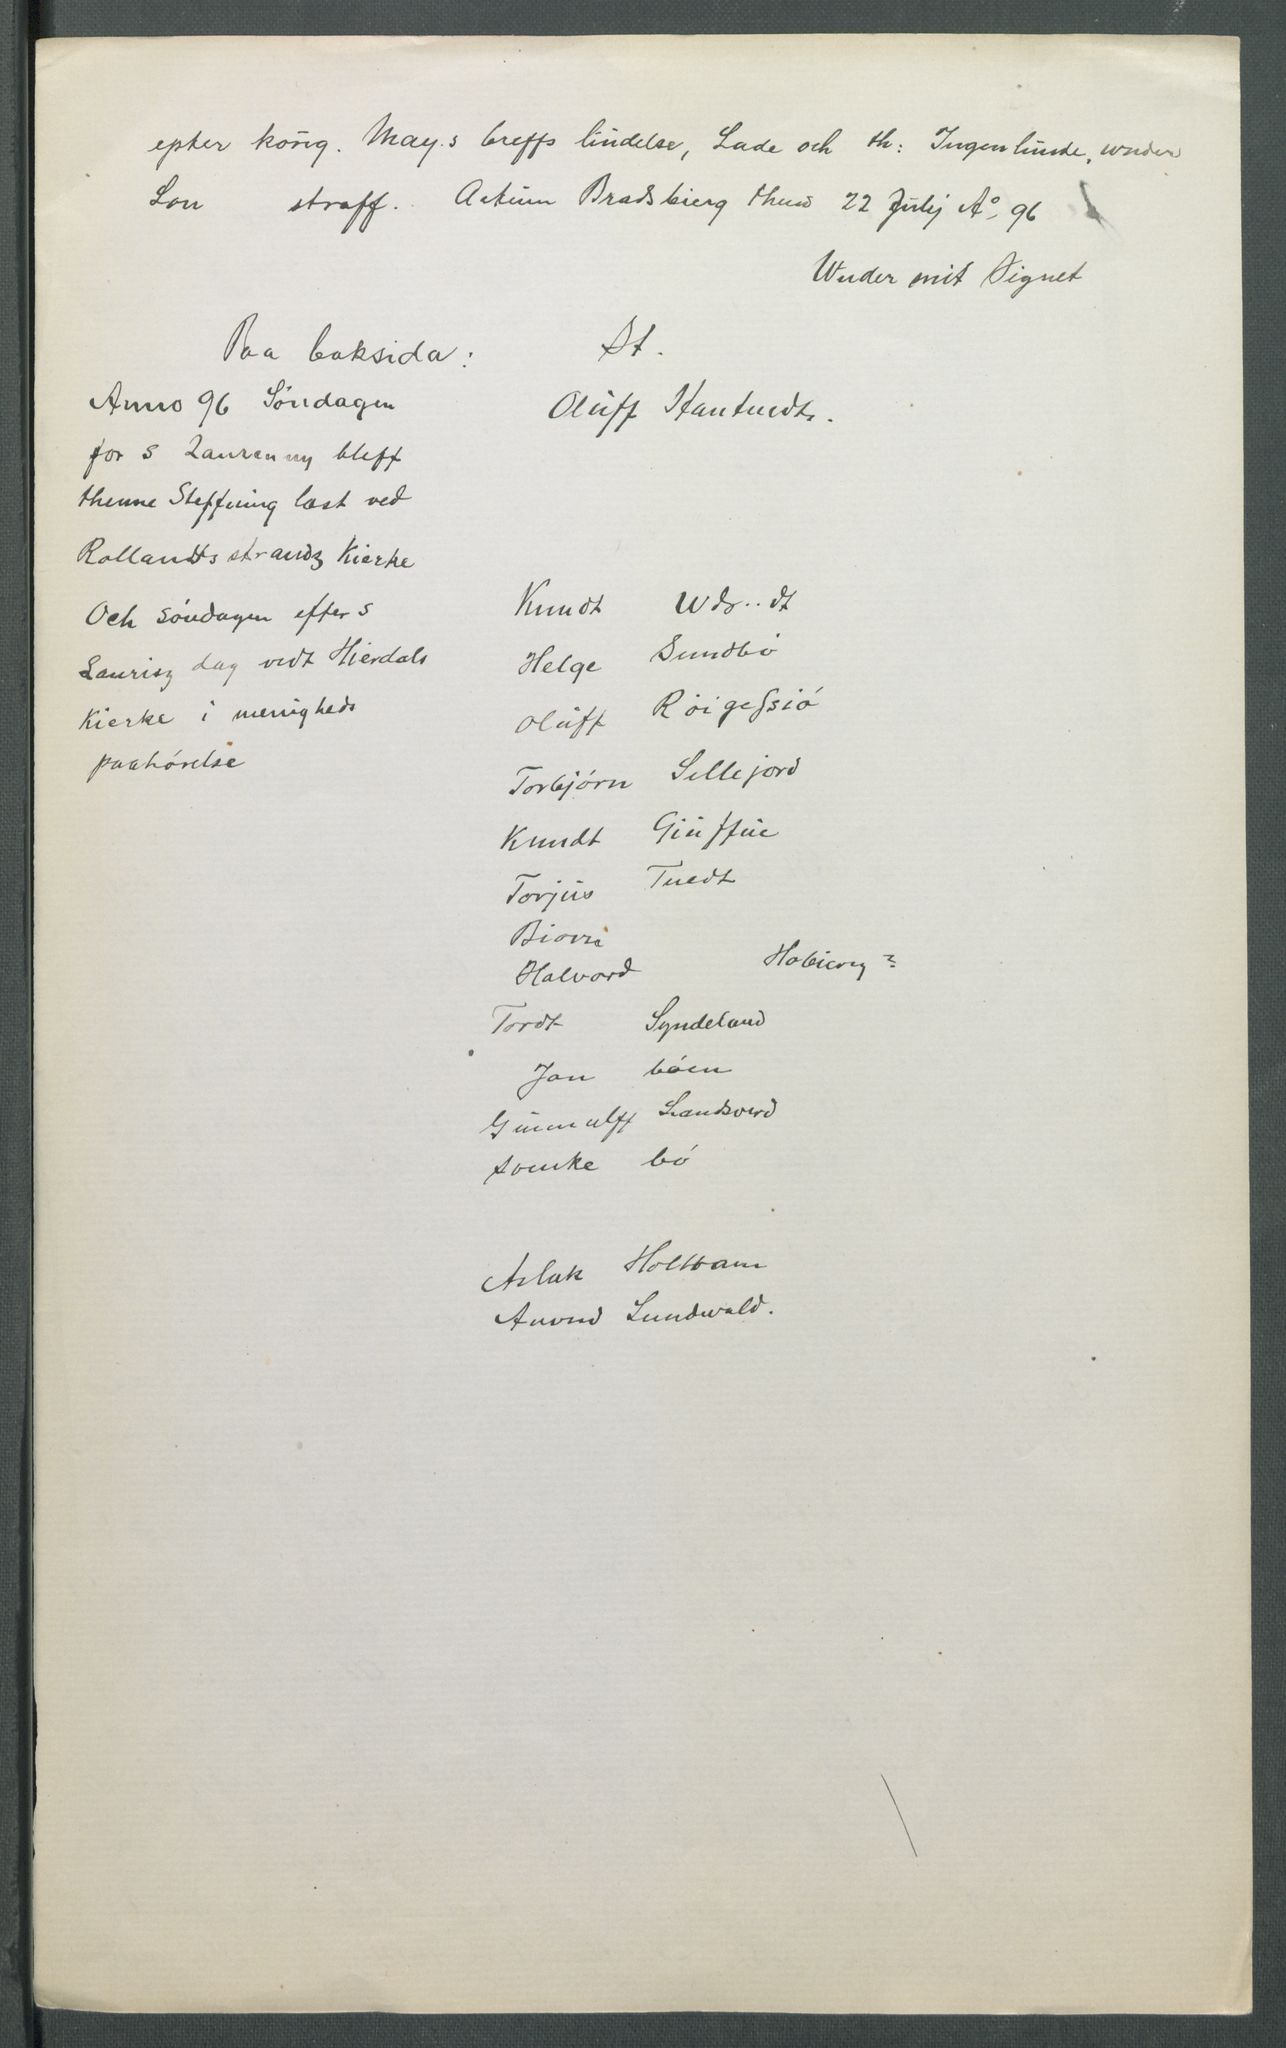 epter könig. May.s breffs liudelse, Lade och th: Ingenlunde, wnder
Lou straff. Actum Bradsbierg thend 22 Julij Aº. 96
Wnder mit Signet
Paa baksida:
St.
Anno 96 Söndagen
for s Laurenny bleff
thenne Steffning læst ved
Rollandts strandz Kierke
Och söndagen efter s
Laurisz dag vedt Hierdals
Kierke i menigheds
paahörelse
Olüff
Knudt Wds..dt
Helge Sundbö
Olüff Röigessiö
Torbjörn Sellejord
Knudt Giüffüe
Torjüs Tuedt
Biorn
Halvord Hobierg?
Tordt Syndeland
Jon böen
Gunnulff Landsverd
Suenke bö
Aslak Holtvam
Anvnd Lundwald.